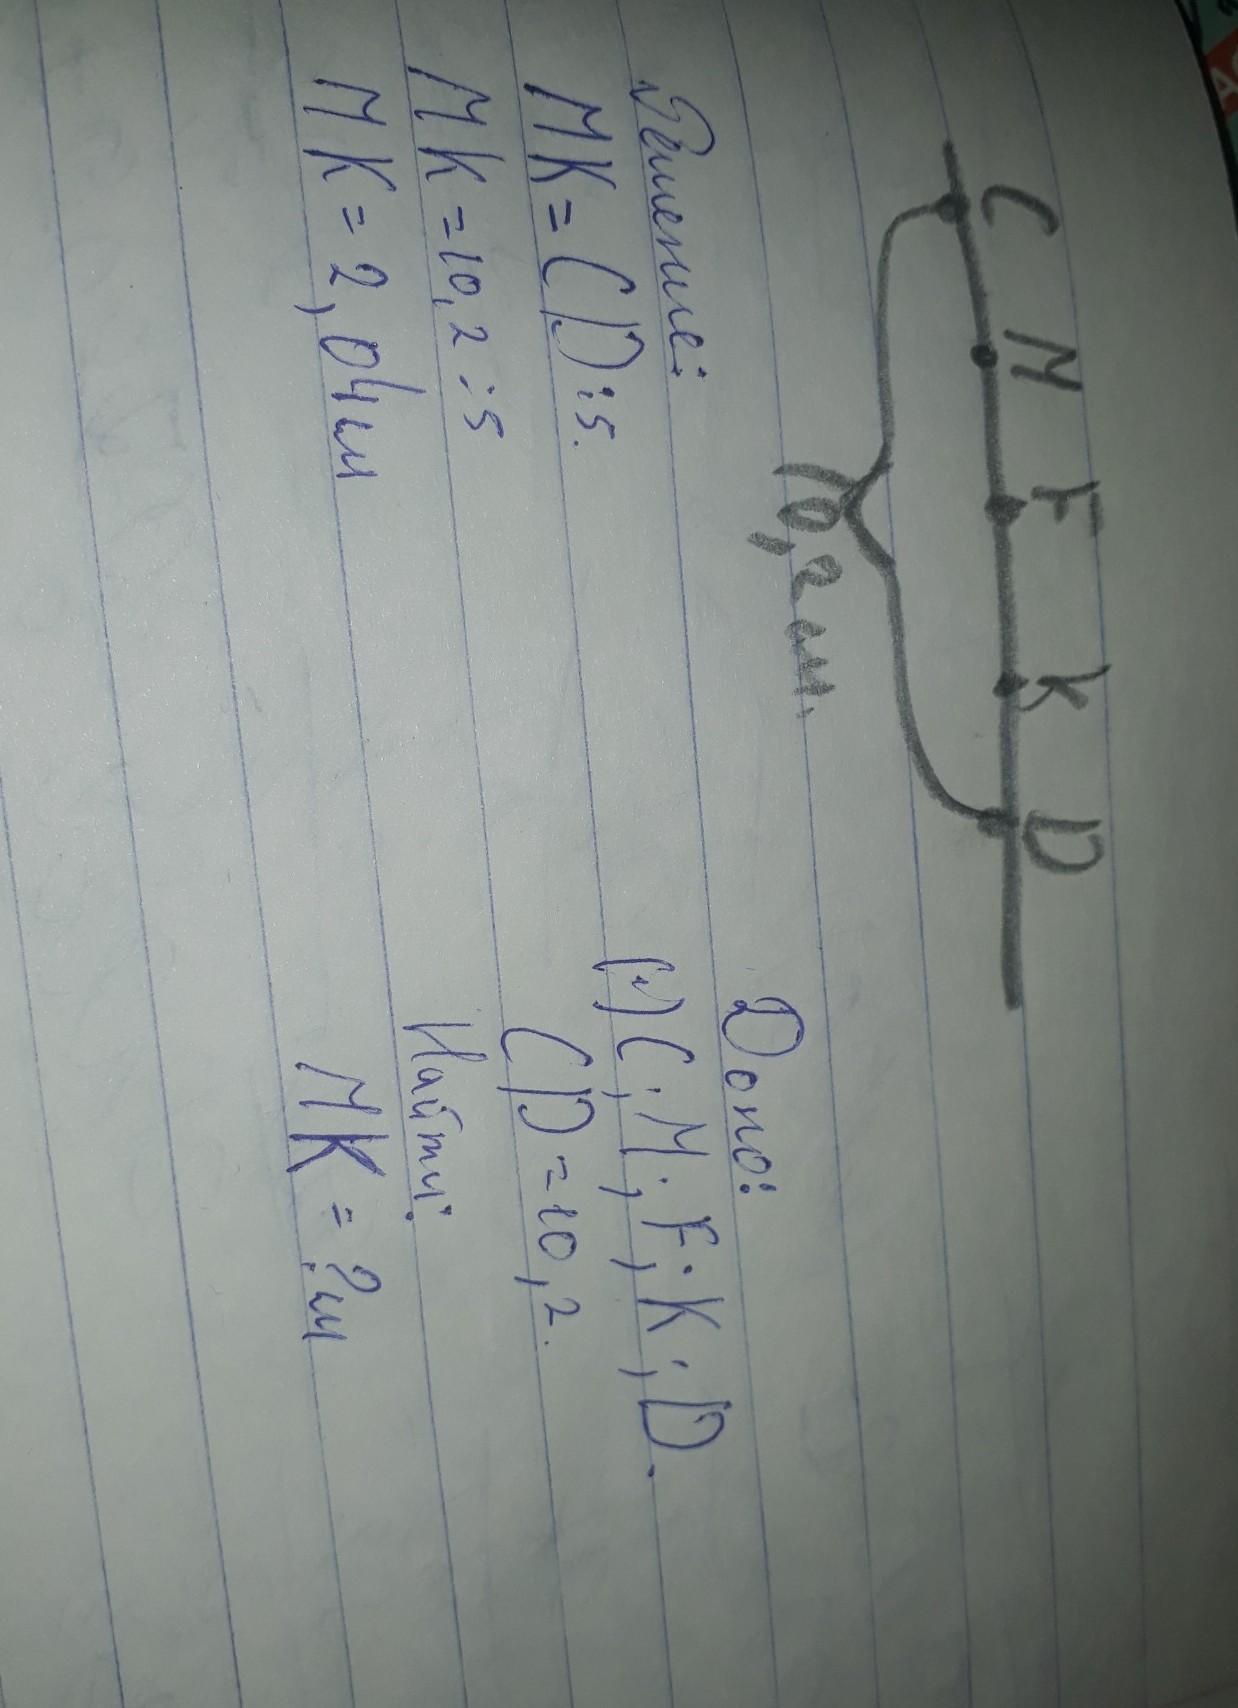 C M F K D
10,2 см.
Дано:
(·) C; M; F; K; D.
CD = 10,2.
Найти:
MK = ? см
Решение:
MK = CD : 5.
MK = 10,2 : 5
MK = 2,04 см